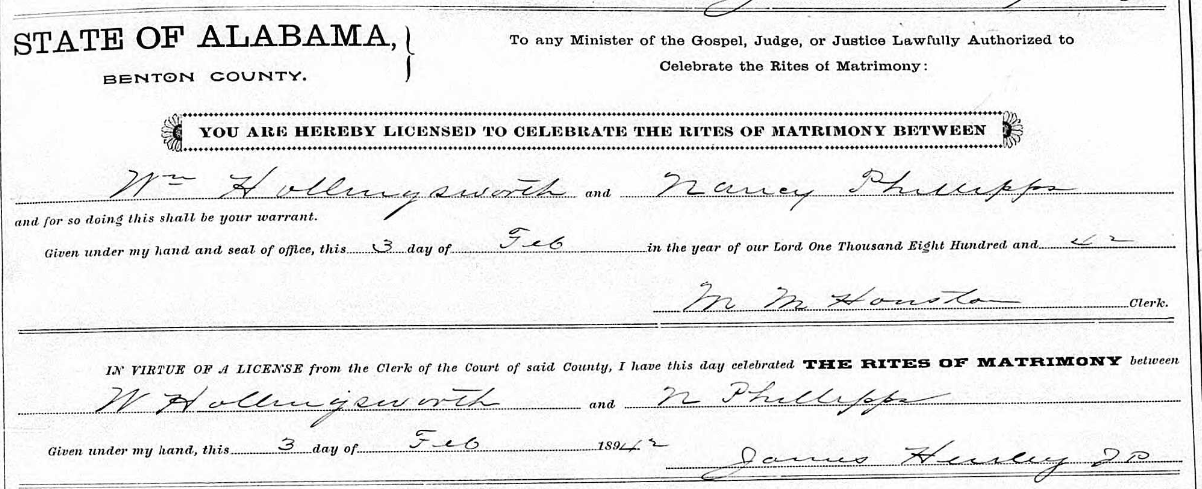 STATE OF ALABAMA,
BENTON COUNTY.
To any Minister of the Gospel, Judge, or Justice Lawfully Authorized to
Celebrate the Rites of Matrimony:
YOU ARE HEREBY LICENSED TO CELEBRATE THE RITES OF MATRIMONY BETWEEN
Wm Hollingsworth and Nancy Phillipps
and for so doing this shall be your warrant.
Given under my hand and seal of office, this 3 day of Feb in the year of our Lord One Thousand Eight Hundred and 42
M M Houston Clerk.
IN VIRTUE OF A LICENSE from the Clerk of the Court of said County, I have this day celebrated THE RITES OF MATRIMONY between
W Hollingsworth and N Phillipps
Given under my hand, this 3 day of Feb 18942
James Hensley JP